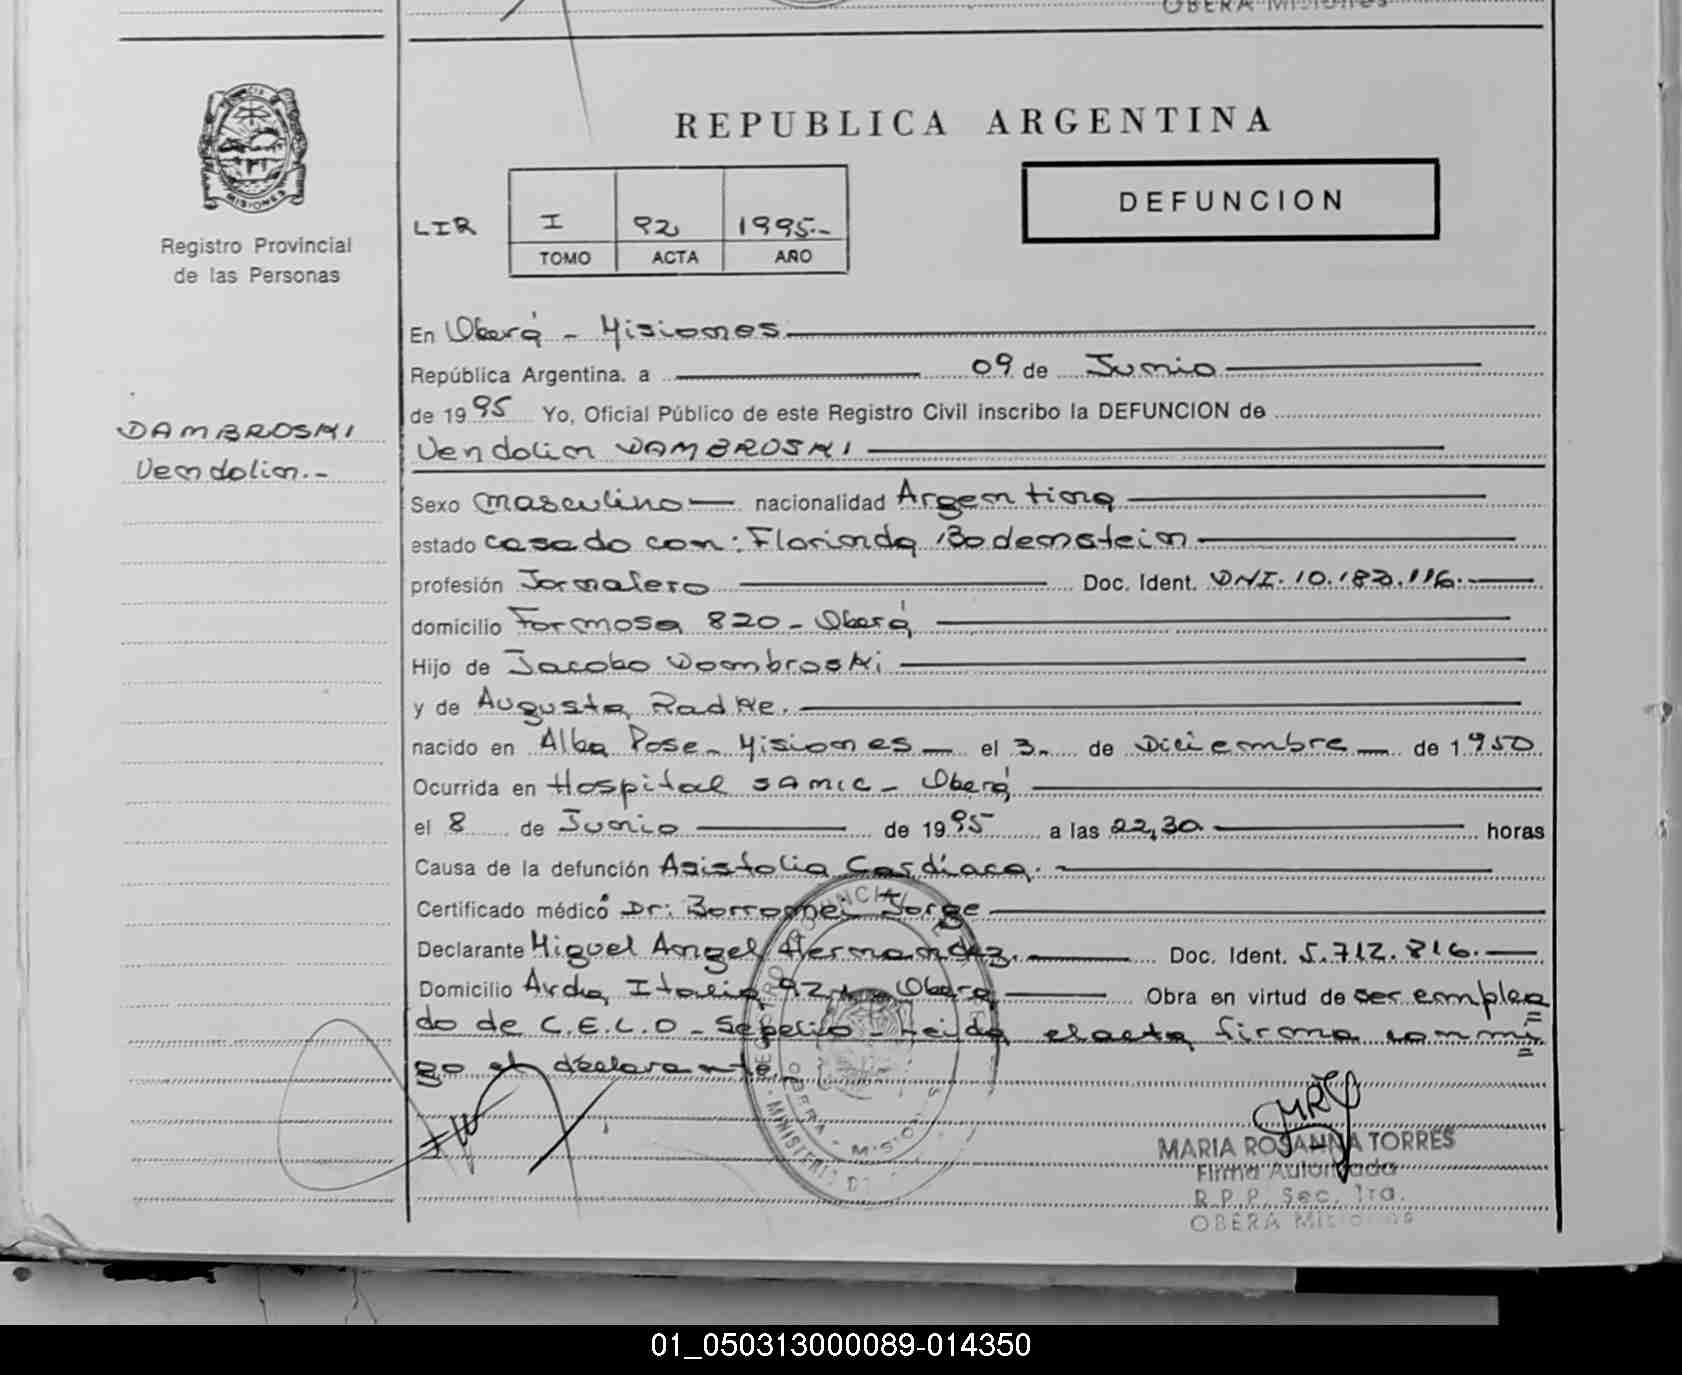 OBERA Misiones
REPUBLICA ARGENTINA
MISIONES
Registro Provincial
de las Personas
LIR I 92 1995.-
TOMO ACTA AÑO
DEFUNCION
En Oberá - Misiones
República Argentina. a 09 de Junio
de 1995 Yo, Oficial Público de este Registro Civil inscribo la DEFUNCION de
DAMBROSKI
Vendolin.-
Vendolin DAMBROSKI
Sexo masculino nacionalidad Argentina
estado casado con: Florinda Bodenstein
profesión Jornalero Doc. Ident. DNI. 10.182.116.
domicilio Formosa 820 - Oberá
Hijo de Jacobo Dombroski
y de Augusta Radke.
nacido en Alba Pose - Misiones el 3. de Diciembre de 1950
Ocurrida en Hospital SAMIC - Oberá
el 8 de Junio de 1995 a las 22,30 horas
Causa de la defunción Asistolia Cardíaca.
Certificado médico Dr: Borromei Jorge
Declarante Miguel Angel Hernandez. Doc. Ident. 5.712.816.
Domicilio Avda, Italia 921 - Oberá Obra en virtud de ser emplea
do de C.E.L.O - Sepelio - Leida el acta firma conmi
go el declarante.-
MARIA ROSANNA TORRES
Firma Autorizada
R.P.P. Sec. 1ra.
OBERA Misiones
01_050313000089-014350